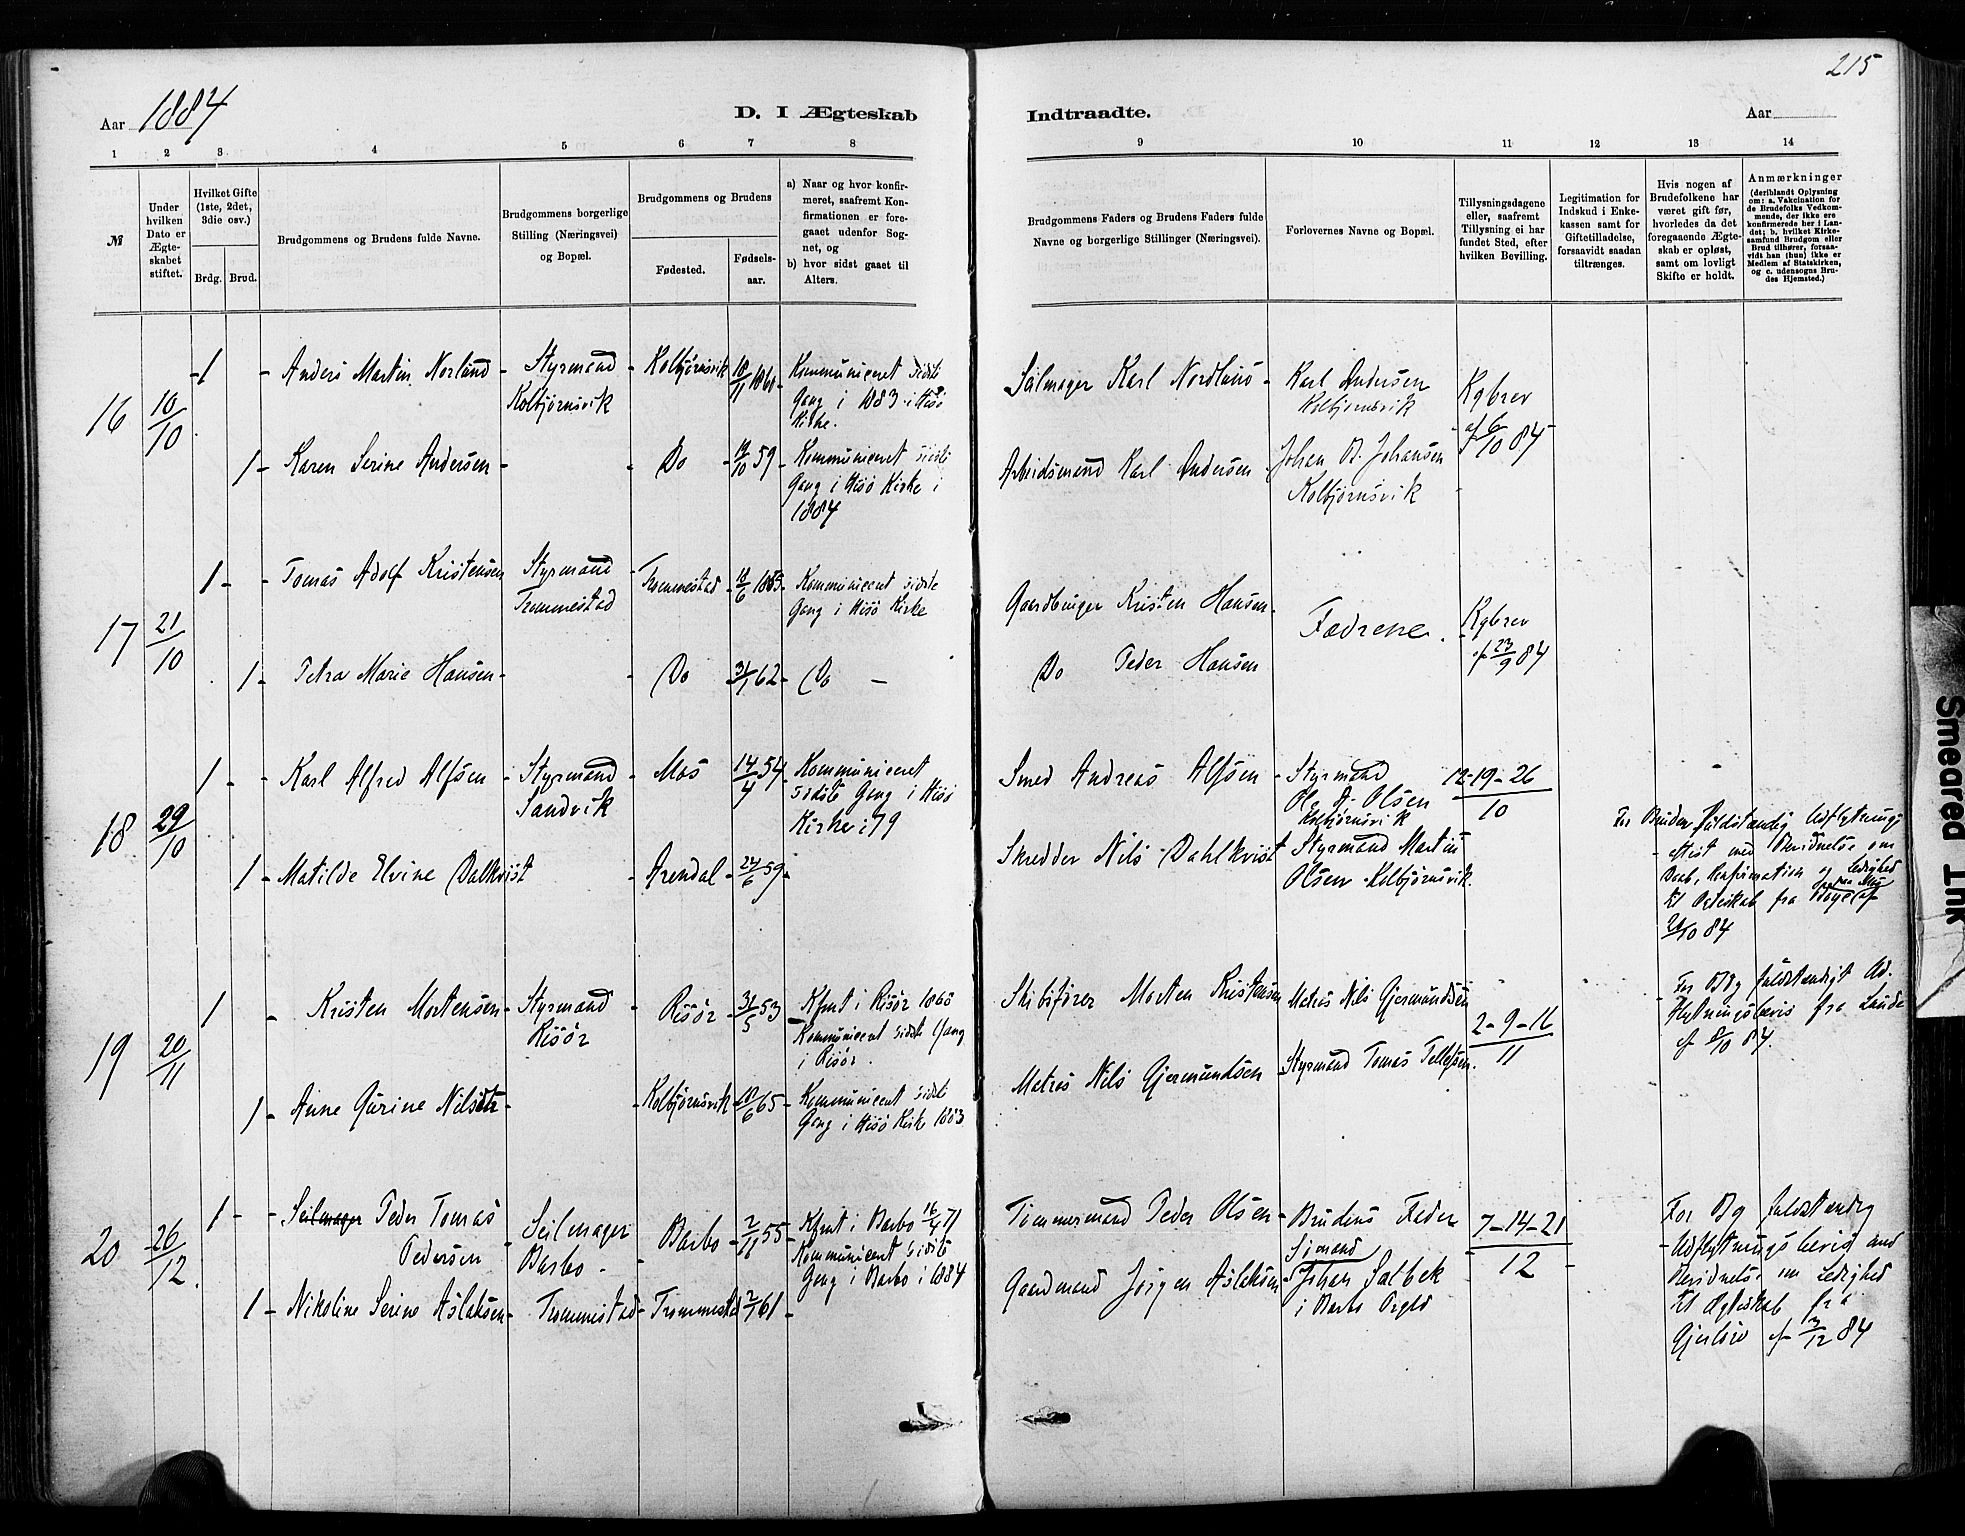 215
Aar 1884
D. I Ægteskab
Indtraadte.
Aar
1 2 3 4 5 6 7 8 9 10 11 12 13 14
№
Under hvilken Dato er Ægteskabet stiftet.
Hvilket Gifte (1ste, 2det, 3die osv.)
Brdg. Brud.
Brudgommens og Brudens fulde Navne.
Brudgommens borgerlige Stilling (Næringsvei) og Bopæl.
Brudgommens og Brudens
Fødested.
Fødsels-aar.
a) Naar og hvor konfir-
meret, saafremt Kon-
firmationen er fore-
gaaet udenfor Sog-
net, og
b) hvor sidst gaaet til
Alters.
Brudgommens Faders og Brudens Faders fulde
Navne og borgerlige Stillinger (Næringsvei).
Forlovernes Navne og Bopæl.
Tillysningsdagene
eller, saafremt
Tillysning ei har
fundet Sted, efter
hvilken Bevilling.
Legitimation for
Indskud i Enke-
kassen samt for
Giftetilladelse,
forsaavidt saadan
tiltrænges.
Hvis nogen af
Brudefolkene har
været gift før,
hvorledes da det
foregaaende Ægte-
skab er opløst,
samt om lovligt
Skifte er holdt.
Anmærkninger
(deriblandt Oplysning
om: a. Vakcination for
de Brudefolks Vedkom-
mende, der ikke ere
konfirmerede her i Lan-
det; b. hvilket Kirke-
samfund Brudgom eller
Brud tilhører, forsaa-
vidt han (hun) ikke er
Medlem af Statskirken,
og c. udensogns Bru-
des Hjemsted.)
16 10/10
1 - Anders Martin Norlund - Styrmand Kolbjørnsvik - Kolbjørnsvik
Kommuniceret sidste
Gang i 1883 i Hisø
Kirke.
Seilmager Karl Nordlund - Karl Andersen
Kolbjørnsvik
Kgbrev
af 6/10 84
1 - Karen Serine Andersen - - Do - 59 - Kommuniceret sidste
Gang i Hisø Kirke i
1884
Arbeidsmand Karl Andersen - Johan B. Johansen
Kolbjørnsvik
17 21/10
1 - - Tomas Adolf Kristensen Styrmand Trommestad - Trommestad - Kommuniceret sidste
Gang i Hisø Kirke
Gaardbruger Kristen Hansen
Fædrene.
Kgbrev
af 23/9 84
1 - Petra Marie Hansen - - Do - 31/1 62 - Do -
Do Peder Hansen
18 29/10
1 - - Karl Alfred Alfsen - Styrmand Sandvik - Mos - 14/4 54 - Kommuniceret
sidste Gang i Hisø
Kirke i 79
Smed Andreas Alfsen - Styrmand
Ole A. Olsen
Kolbjørnsvik
12-19-26
10
1 - Matilde Elvine Dalkvist - Arendal - 24/6 59 -
Skredder Nils Dahlkvist Styrmand Martin
Olsen - Kolbjørnsvik.
For Bruden fuldstændig Udflytnings
Attest med Bevidnelse om
Daab, Konfirmation og Ledighed
til Ægteskab fra
10 84
19 20/11
1 - Kristen Mortensen - Styrmand Risør - Risør - 31/5 53 - Kfmt i Risør
Kommuniceret sidste Gang
i Risør.
Skibsfører Morten Kristensen Matros Nils Gjermundsen
2-9-16
11
For Bg fuldstændigt Ud-
flytningsbevis fra Lunde
af 8/10 84.
1 - Anne Gurine Nilsdtr - - Kolbjørnsvik - 65 - Kommuniceret sidste
Gang i Hisø Kirke 1883
Matros Nils Gjermundsen - Styrmand Tomas Tellefsen.
20 26/12
1 - - Seilmager Peder Tomas
Pedersen - Seilmager
Barbo. - Barbo - 2/11 55 - Kfmt i Barbo 16/4 71
Kommuniceret sidste
Gang i Barbo i 1884
Tømmermand Peder Olsen - Brudens Fader
7-14-21
12
For Bg fuldstændig
Udflytnings bevis med
Bevidnelse om Ledighed
til Ægteskab fra
af 3/12 84
1 - Nikoline Serine Aslaksen - Trommestad - Trommestad 61 -
Gaardmand Jørgen Aslaksen - Sømand
Johan Salbek
i Barbo
Smeared Ink